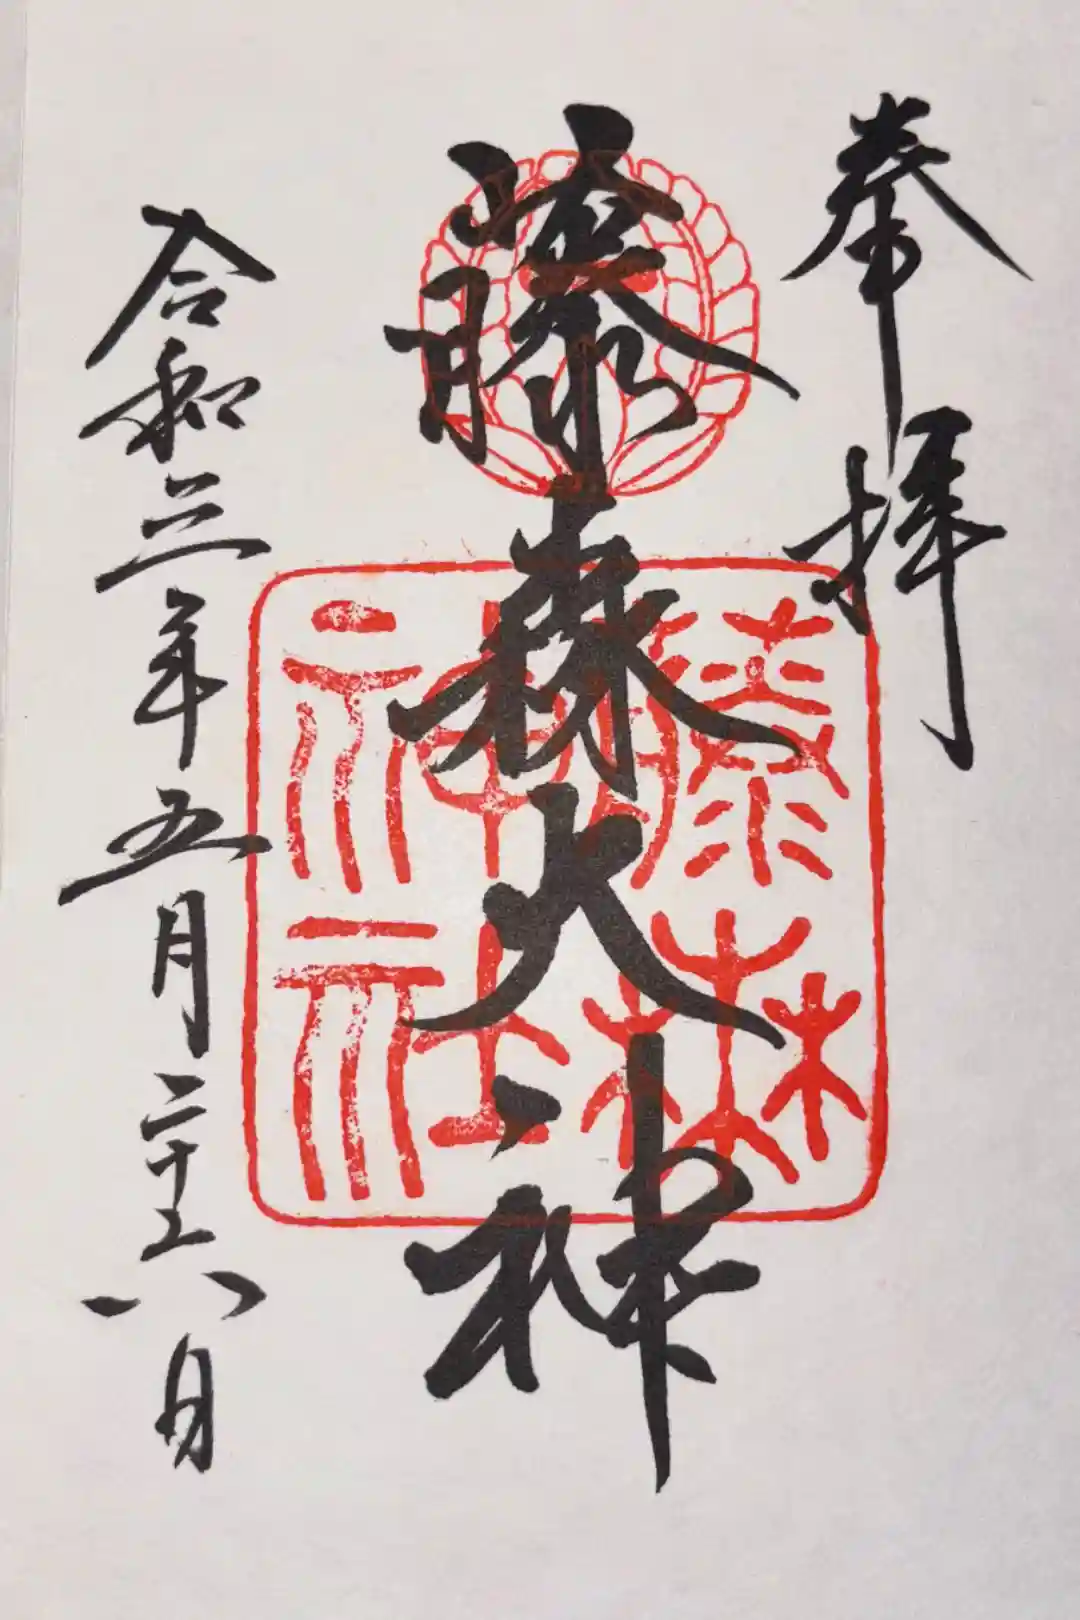 奉拝
藤森大神
藤森神社
令和三年五月二十六日